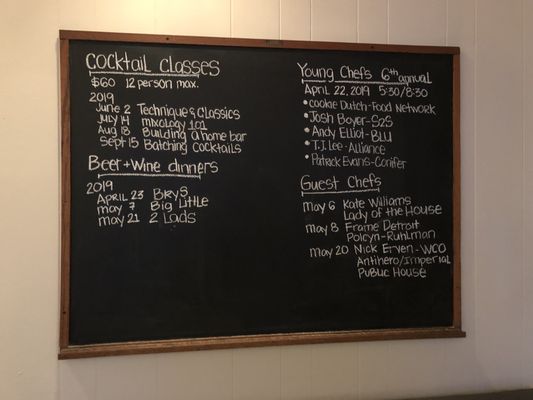 Cocktail Classes
$60 12 person max.
2019
June 2 Technique & Classics
July 14 mixology 101
Aug 18 Building a home bar
Sept 15 Batching cocktails
Beer + Wine dinners
2019
April 23 Brys
may 7 Big Little
may 21 2 Lads
Young Chefs 6th annual
April 22, 2019 5:30/8:30
• Cookie Dutch-Food Network
• Josh Boyer-S2S
• Andy Elliot-BLU
• T.J. Lee-Alliance
• Patrick Evans-Conifer
Guest Chefs
may 6 Kate Williams
Lady of the House
may 8 Frame Detroit
Polcyn-Ruhlman
may 20 Nick Erven-WCO
Antihero/Imperial
Public House